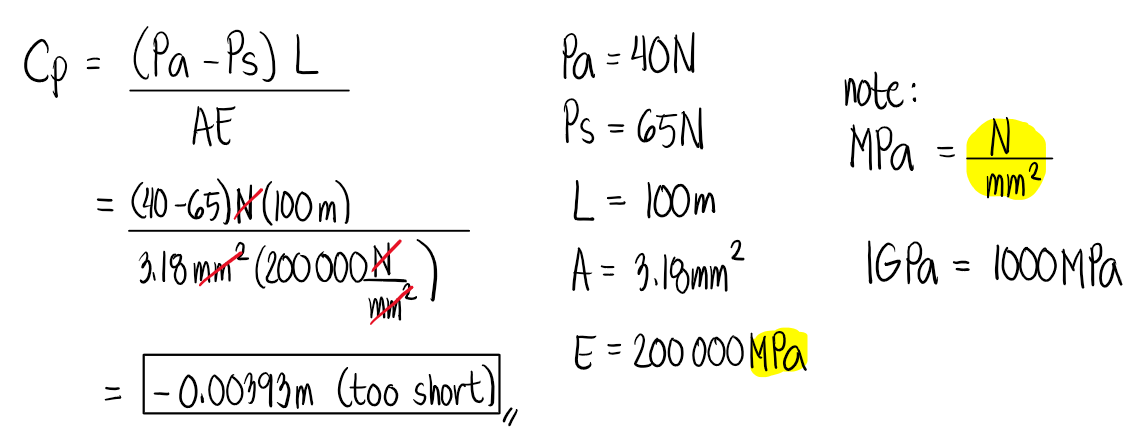 Cp = (Pa - Ps) L / AE
= (40 - 65)N (100m) / 3.18mm² (200 000 N/mm²)
= -0.00393m (too short)
Pa = 40N
Ps = 65N
L = 100m
A = 3.18mm²
E = 200 000 MPa
note:
MPa = N/mm²
1GPa = 1000MPa